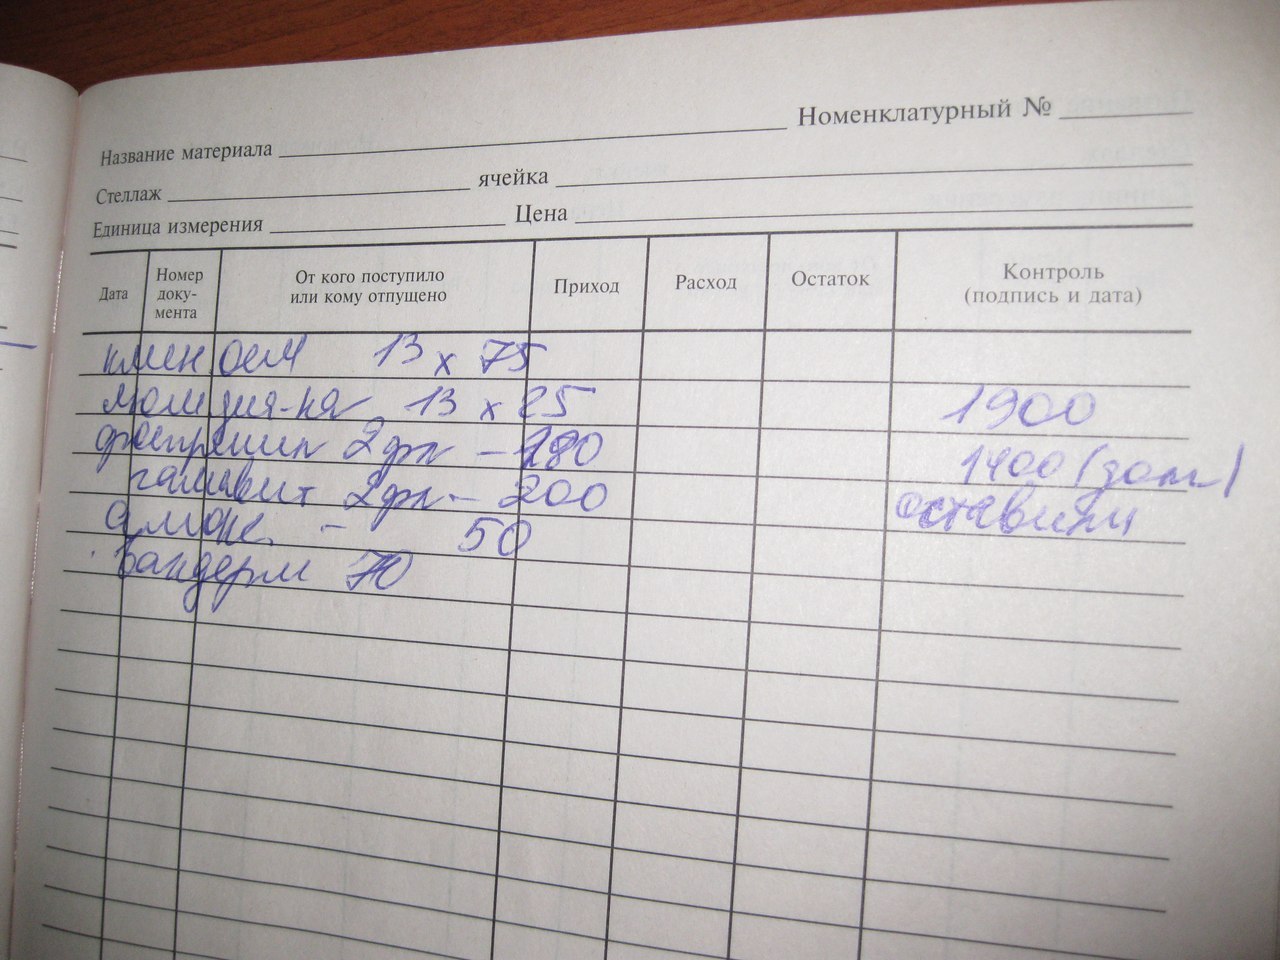 Номенклатурный №
Название материала
Стеллаж ячейка
Единица измерения Цена
Дата Номер доку-мента От кого поступило или кому отпущено Приход Расход Остаток Контроль (подпись и дата)
клин осм 13 х 75
х 25 1900
фоспренил 2 фл - 280 1400 (долг)
гамавит 2 фл - 200 оставили
- 50
бандерм 70